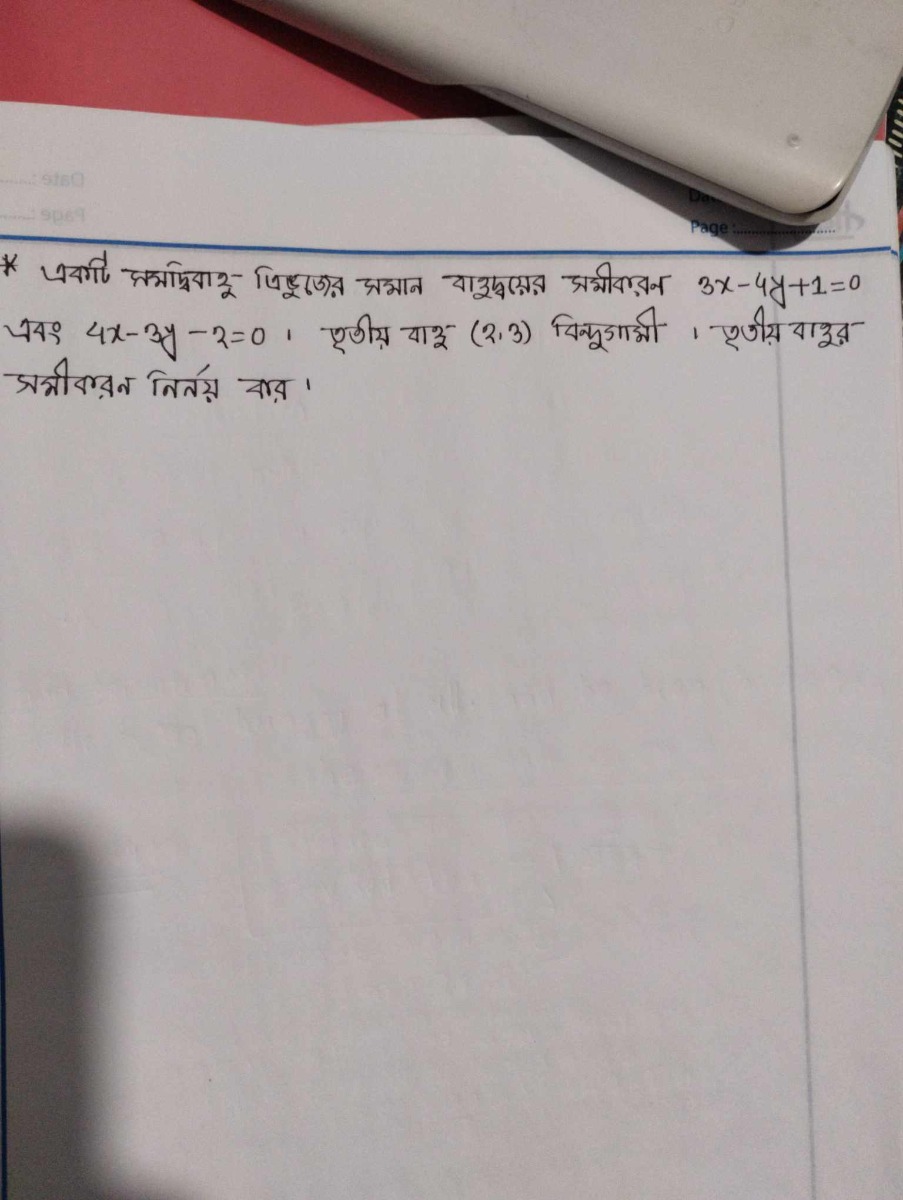 Page :
* একটি সমদ্বিবাহু ত্রিভুজের সমান বাহুদ্বয়ের সমীকরন 3x-4y+1=0
এবং 4x-3y-2=0 । তৃতীয় বাহু (2,3) বিন্দুগামী । তৃতীয় বাহুর
সমীকরন নির্নয় কর ।